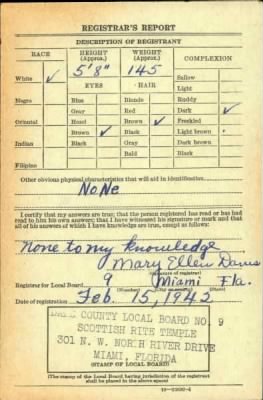 REGISTRAR'S REPORT
DESCRIPTION OF REGISTRANT
RACE HEIGHT (Approx.) WEIGHT (Approx.) COMPLEXION
5'8" 145
White ✓ Sallow
EYES HAIR Light
Negro Blue Blonde Ruddy
Gray Red Dark ✓
Oriental Hazel Brown ✓ Freckled
Brown ✓ Black Light brown
Indian Black Gray Dark brown
Bald Black
Filipino
Other obvious physical characteristics that will aid in identification
NoNe
I certify that my answers are true; that the person registered has read or has had
read to him his own answers; that I have witnessed his signature or mark and that
all of his answers of which I have knowledge are true, except as follows:
None to my knowledge
Mary Ellen Davis
(Signature of registrar)
Registrar for Local Board 9 Miami Fla.
(Number) (City or county) (State)
Date of registration Feb. 15, 1942
DADE COUNTY LOCAL BOARD NO. 9
SCOTTISH RITE TEMPLE
301 N. W. NORTH RIVER DRIVE
MIAMI, FLORIDA
(STAMP OF LOCAL BOARD)
(The stamp of the Local Board having jurisdiction of the registrant
shall be placed in the above space)